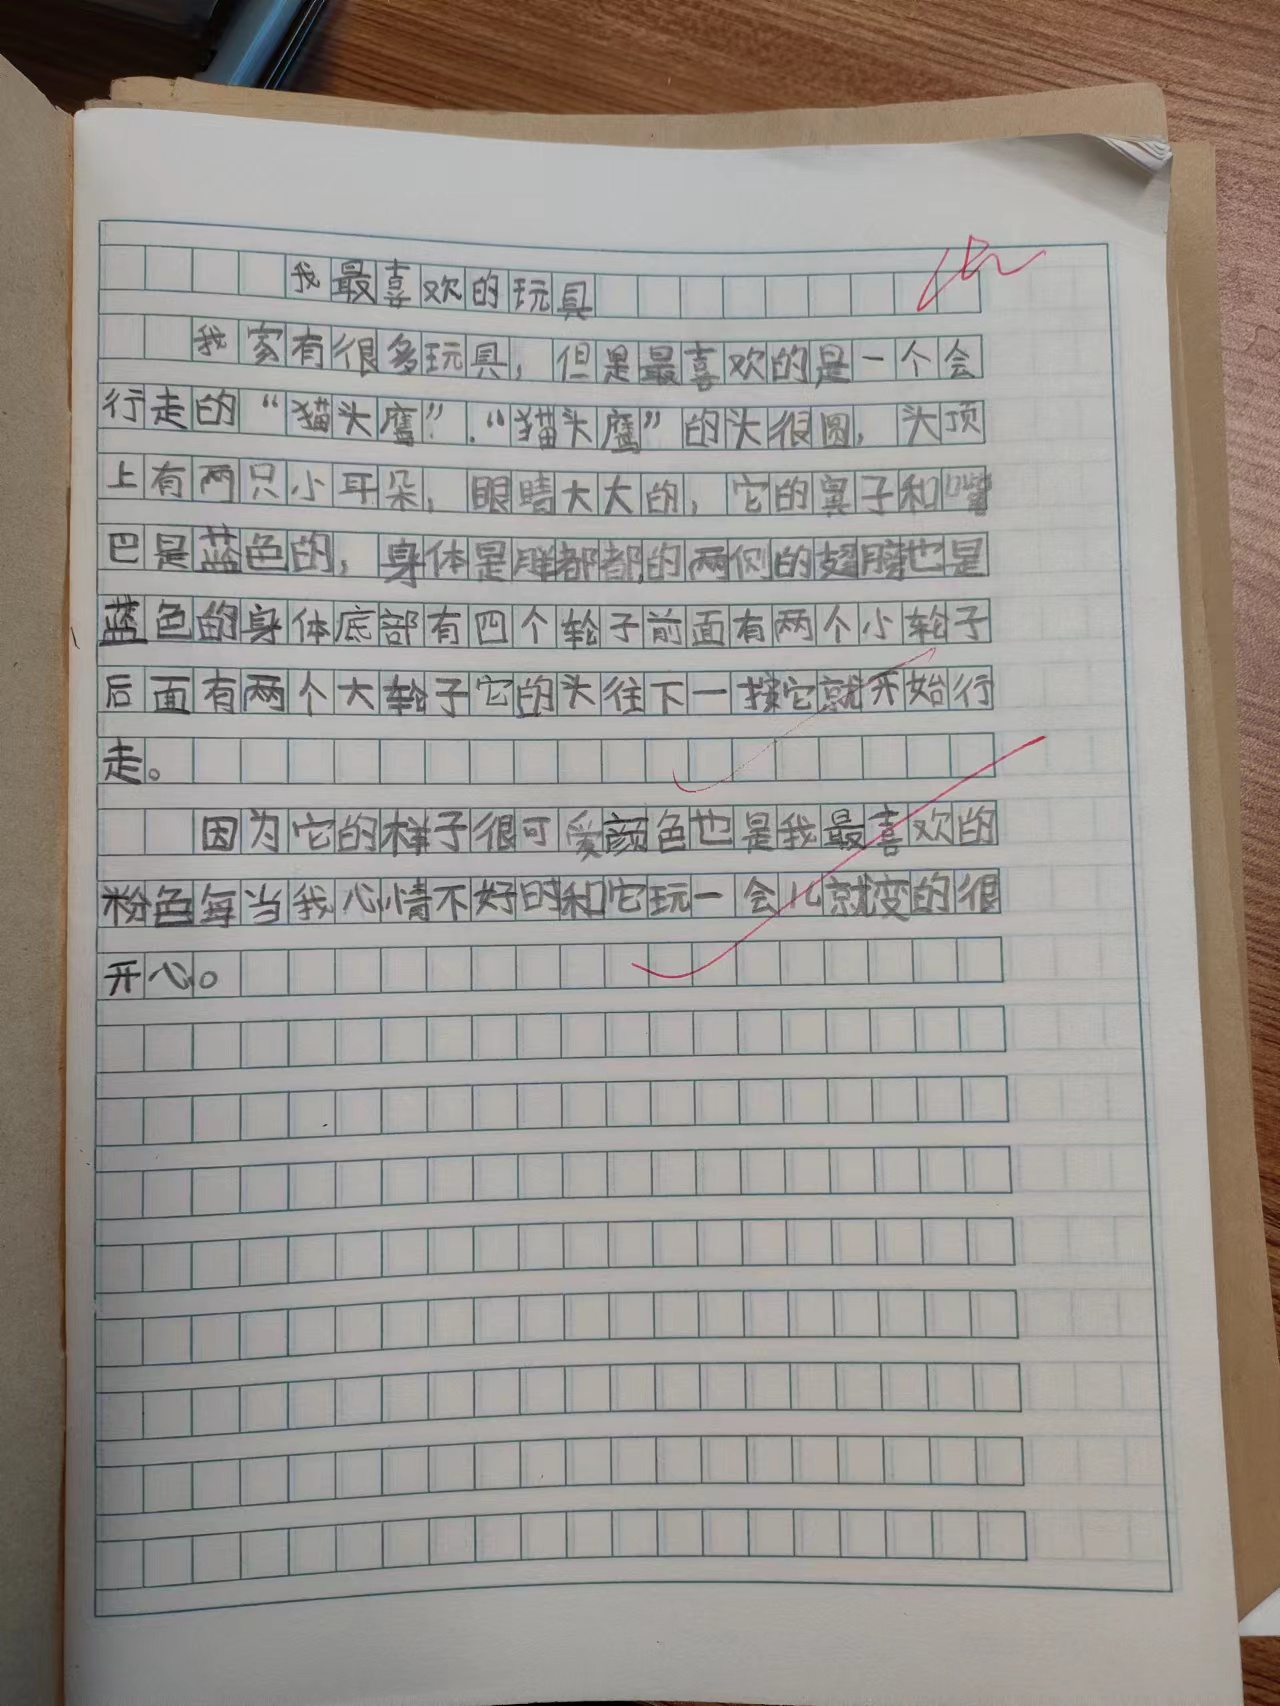 我最喜欢的玩具
我家有很多玩具，但是最喜欢的是一个会
行走的“猫头鹰”.“猫头鹰”的头很圆，头顶
上有两只小耳朵，眼睛大大的，它的鼻子和嘴
巴是蓝色的，身体是胖都都的两侧的翅膀也是
蓝色的身体底部有四个轮子前面有两个小轮子
后面有两个大轮子它的头往下一按它就开始行
走。
因为它的样子很可爱颜色也是我最喜欢的
粉色每当我心情不好时和它玩一会儿就变的很
开心。